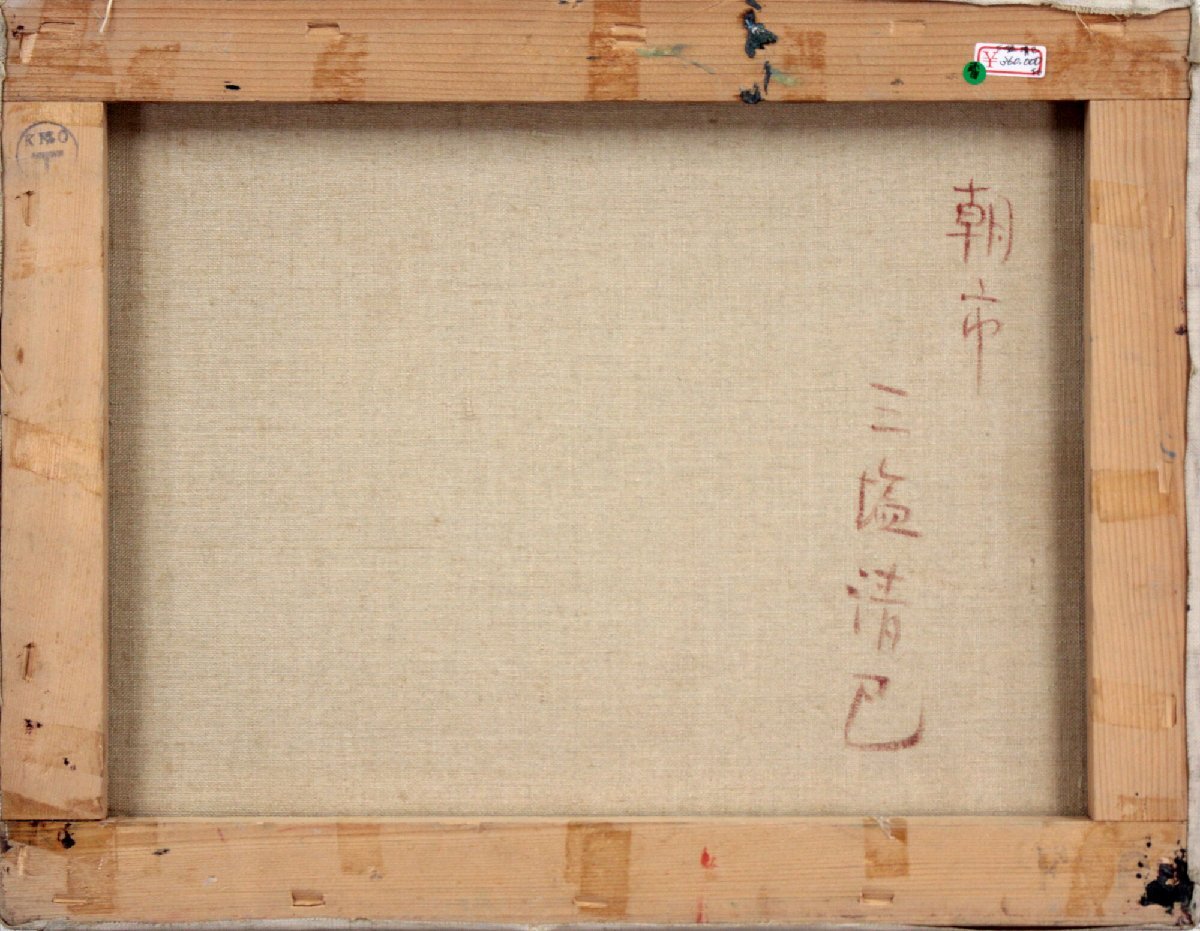 朝市
三塩清巳
¥360.000